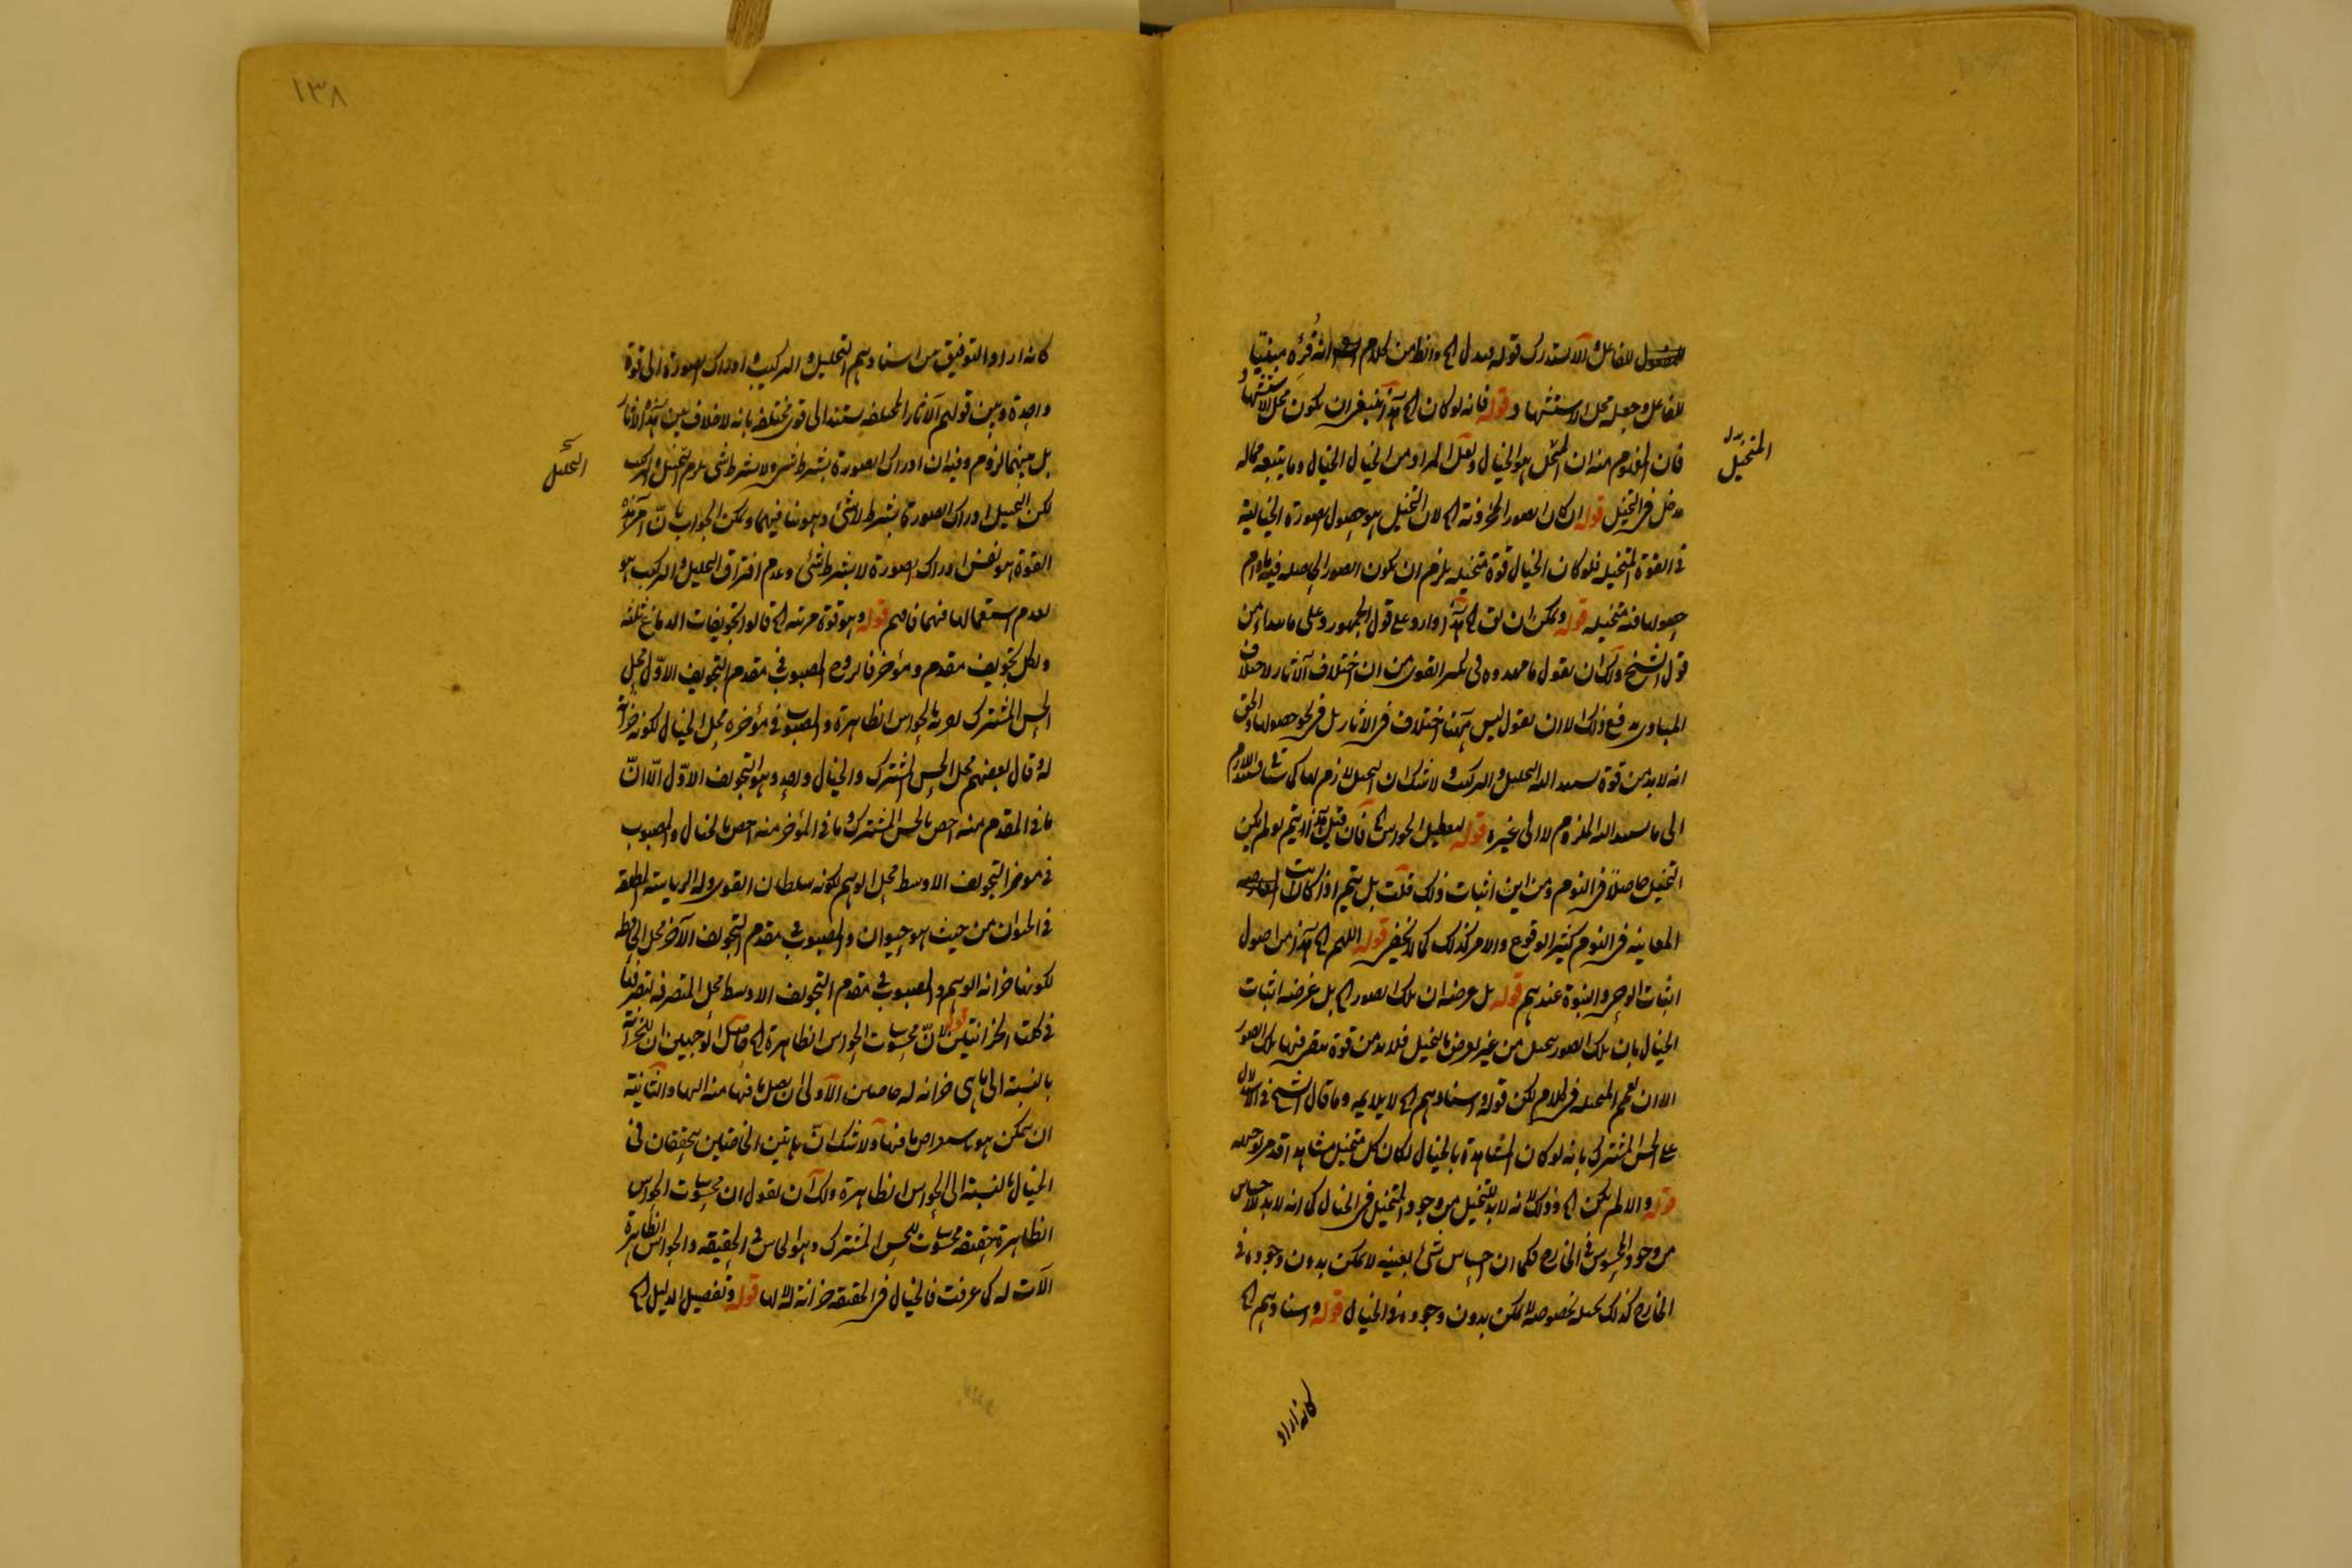 للفاعل والا استدرك قوله فبدل الخ والظ من كلام انه قرئ مبنيا
للفاعل وجعله محل الاستشهاد قوله فانه لو كان الخ هذا ينبغى ان يكون محل الاستشهاد
فان المفهوم منه ان المتخيل هو الخيال ولعل المراد من الخيال الخيال وما يتبعه مما له
مدخل فى التخيل قوله ان كان الصور المخزونة الخ لان التخيل هو حصول الصورة الخيالية
فى القوة المتخيله فلو كان الخيال قوة متخيله يلزم ان يكون الصور الحاصله فيه مادام
حصولها فيه متخيله قوله ويمكن ان يق الخ هذا وارد على قول الجمهور وعلى ما من
قول الشيخ ولك ان يقول ما مهدوه فى القوى من ان اختلاف الآثار لاختلاف
المبادى يدفع ذلك الا ان يقول ليس ههنا اختلاف فى الآثار بل فى نحو حصولها والحق
انه لابد من قوة يستند اليها التحليل والتركيب ولا شك ان التخيل لازم لهما واللازم
الى ما يستند اليه الملزوم لا الى غيره قوله لتعطيل الحواس الخ فان قيل هذا يتم لو لم يكن
التخيل حاصلا فى النوم ومن اين اثبات ذلك قلت بل يتم اذا كانت
المعاينه فى النوم كثير الوقوع والامر كذلك كما لا يخفى قوله اللهم الخ هذا من اصول
اثبات الوحى والنبوة عندهم قوله بل غرضه ان تلك الصور الخ بل غرضه اثبات
الخيال بان تلك الصور من غير تعرض بالتخيل فلا بد من قوة يتصرف فيها تلك الصور
الا ان يعمم المتخيله فى الكلام لكن قوله واسنادهم الخ لا يلايمه وما قال الشيخ فى الاستدلال
على الحس المشترك بانه لو كان المشاهدة بالخيال لكان كل متخيل مشاهدا
قوله والا لم يكن الخ وذلك لانه لابد للتخيل من وجود المتخيل فى الخيال كما انه لابد للاحساس
من وجود المحسوس فى الخارج فكما ان احساس شئ بعينه لا يمكن بدون وجوده فى
الخارج كذلك تخيله بخصوصه لا يمكن بدون وجوده فى الخيال قوله واسنادهم الخ
المتخيل
كانه اراد
١٣٨
كانه اراد التوفيق من اسنادهم التحليل والتركيب وادراك الصورة الى قوة
واحدة وبين قولهم الآثار المختلفه يستند الى قوى مختلفه بانه لا خلاف بين هذه الآثار
بل بينهما لزوم وفيه ان ادراك الصورة بشرط شئ ولا بشرط شئ يلزم التحليل والتركيب
لكن التخيل ادراك الصورة بشرط لا شئ وهو ينافيهما ويمكن الجواب بان اثر هذه
القوة هو نفس ادراك الصورة لا بشرط شئ وعدم افتراق التحليل والتركيب هو
لعدم استعمالها فيهما فافهم قوله وهو قوة مرتبه الخ قالوا تجويفات الدماغ ثلثه
ولكل تجويف مقدم ومؤخر فالروح المصبوب فى مقدم التجويف الاول محل
الحس المشترك لقربه بالحواس الظاهرة والمصبوب فى مؤخره محل الخيال لكونه خزانة
له وقال بعضهم محل الحس المشترك والخيال واحد وهو التجويف الاول الا ان
ما فى المقدم منه اخص بالحس المشترك وما فى المؤخر منه اخص بالخيال والمصبوب
فى مؤخر التجويف الاوسط محل الوهم لكونه سلطان القوى وله الرياسة المطلقه
فى الحيوان من حيث هو حيوان والمصبوب فى مقدم التجويف الآخر محل الحافظه
لكونها خزانه الوهم والمصبوب فى مقدم التجويف الاوسط محل المتصرفه لتصرفها
فى كلت الخزانتين قوله لان محسوسات الحواس الظاهرة الخ حاصل الوجهين ان للخزانة
بالنسبة الى ما هى خزانه له خاصتين الاولى ان يصل ما فيها منه اليها والثانية
ان يتمكن هو باستعراض ما فيها ولا شك ان هاتين الخاصتين يتحققان فى
الخيال بالنسبة الى الحواس الظاهرة ولك ان يقول ان محسوسات الحواس
الظاهرة حقيقه محسوسات للحس المشترك وهو الحاس فى الحقيقه والحواس الظاهرة
آلات له كما عرفت فالخيال فى الحقيقه خزانة له لا لها قوله وتفصيل الدليل الخ
التحليل